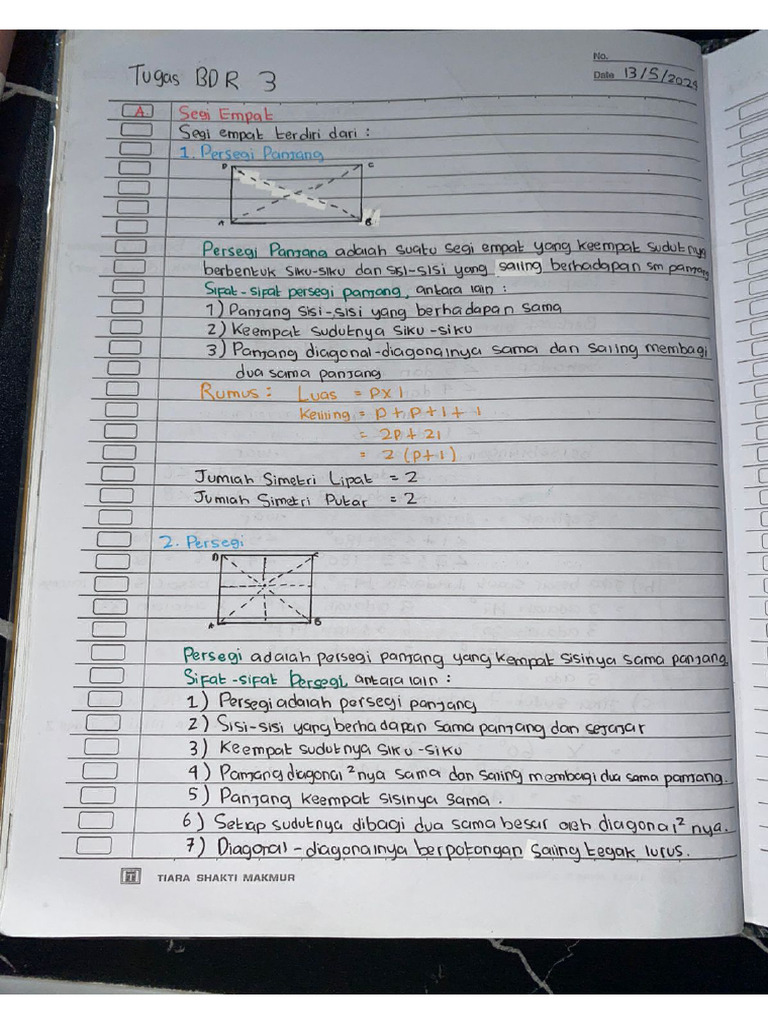 Tugas BDR 3
No.
Date 13/5/2024
A. Segi Empat
Segi empat terdiri dari :
1. Persegi Panjang
D C
A B
Persegi Panjang adalah suatu segi empat yang keempat sudutnya
berbentuk siku-siku dan sisi-sisi yang saling berhadapan sm panjang
Sifat-sifat persegi panjang, antara lain :
1) Panjang sisi-sisi yang berhadapan sama
2) Keempat sudutnya siku-siku
3) Panjang diagonal-diagonalnya sama dan saling membagi
dua sama panjang
Rumus : Luas = p x l
Keliling = p + p + l + l
= 2p + 2l
= 2 (p+l)
Jumlah Simetri Lipat = 2
Jumlah Simetri Putar = 2
2. Persegi
D C
A B
Persegi adalah persegi panjang yang kempat sisinya sama panjang
Sifat-sifat Persegi, antara lain :
1) Persegi adalah persegi panjang
2) Sisi-sisi yang berhadapan sama panjang dan sejajar
3) Keempat sudutnya siku-siku
4) Panjang diagonal²nya sama dan saling membagi dua sama panjang.
5) Panjang keempat sisinya sama.
6) Setiap sudutnya dibagi dua sama besar oleh diagonal²nya.
7) Diagonal-diagonalnya berpotongan saling tegak lurus.
TIARA SHAKTI MAKMUR